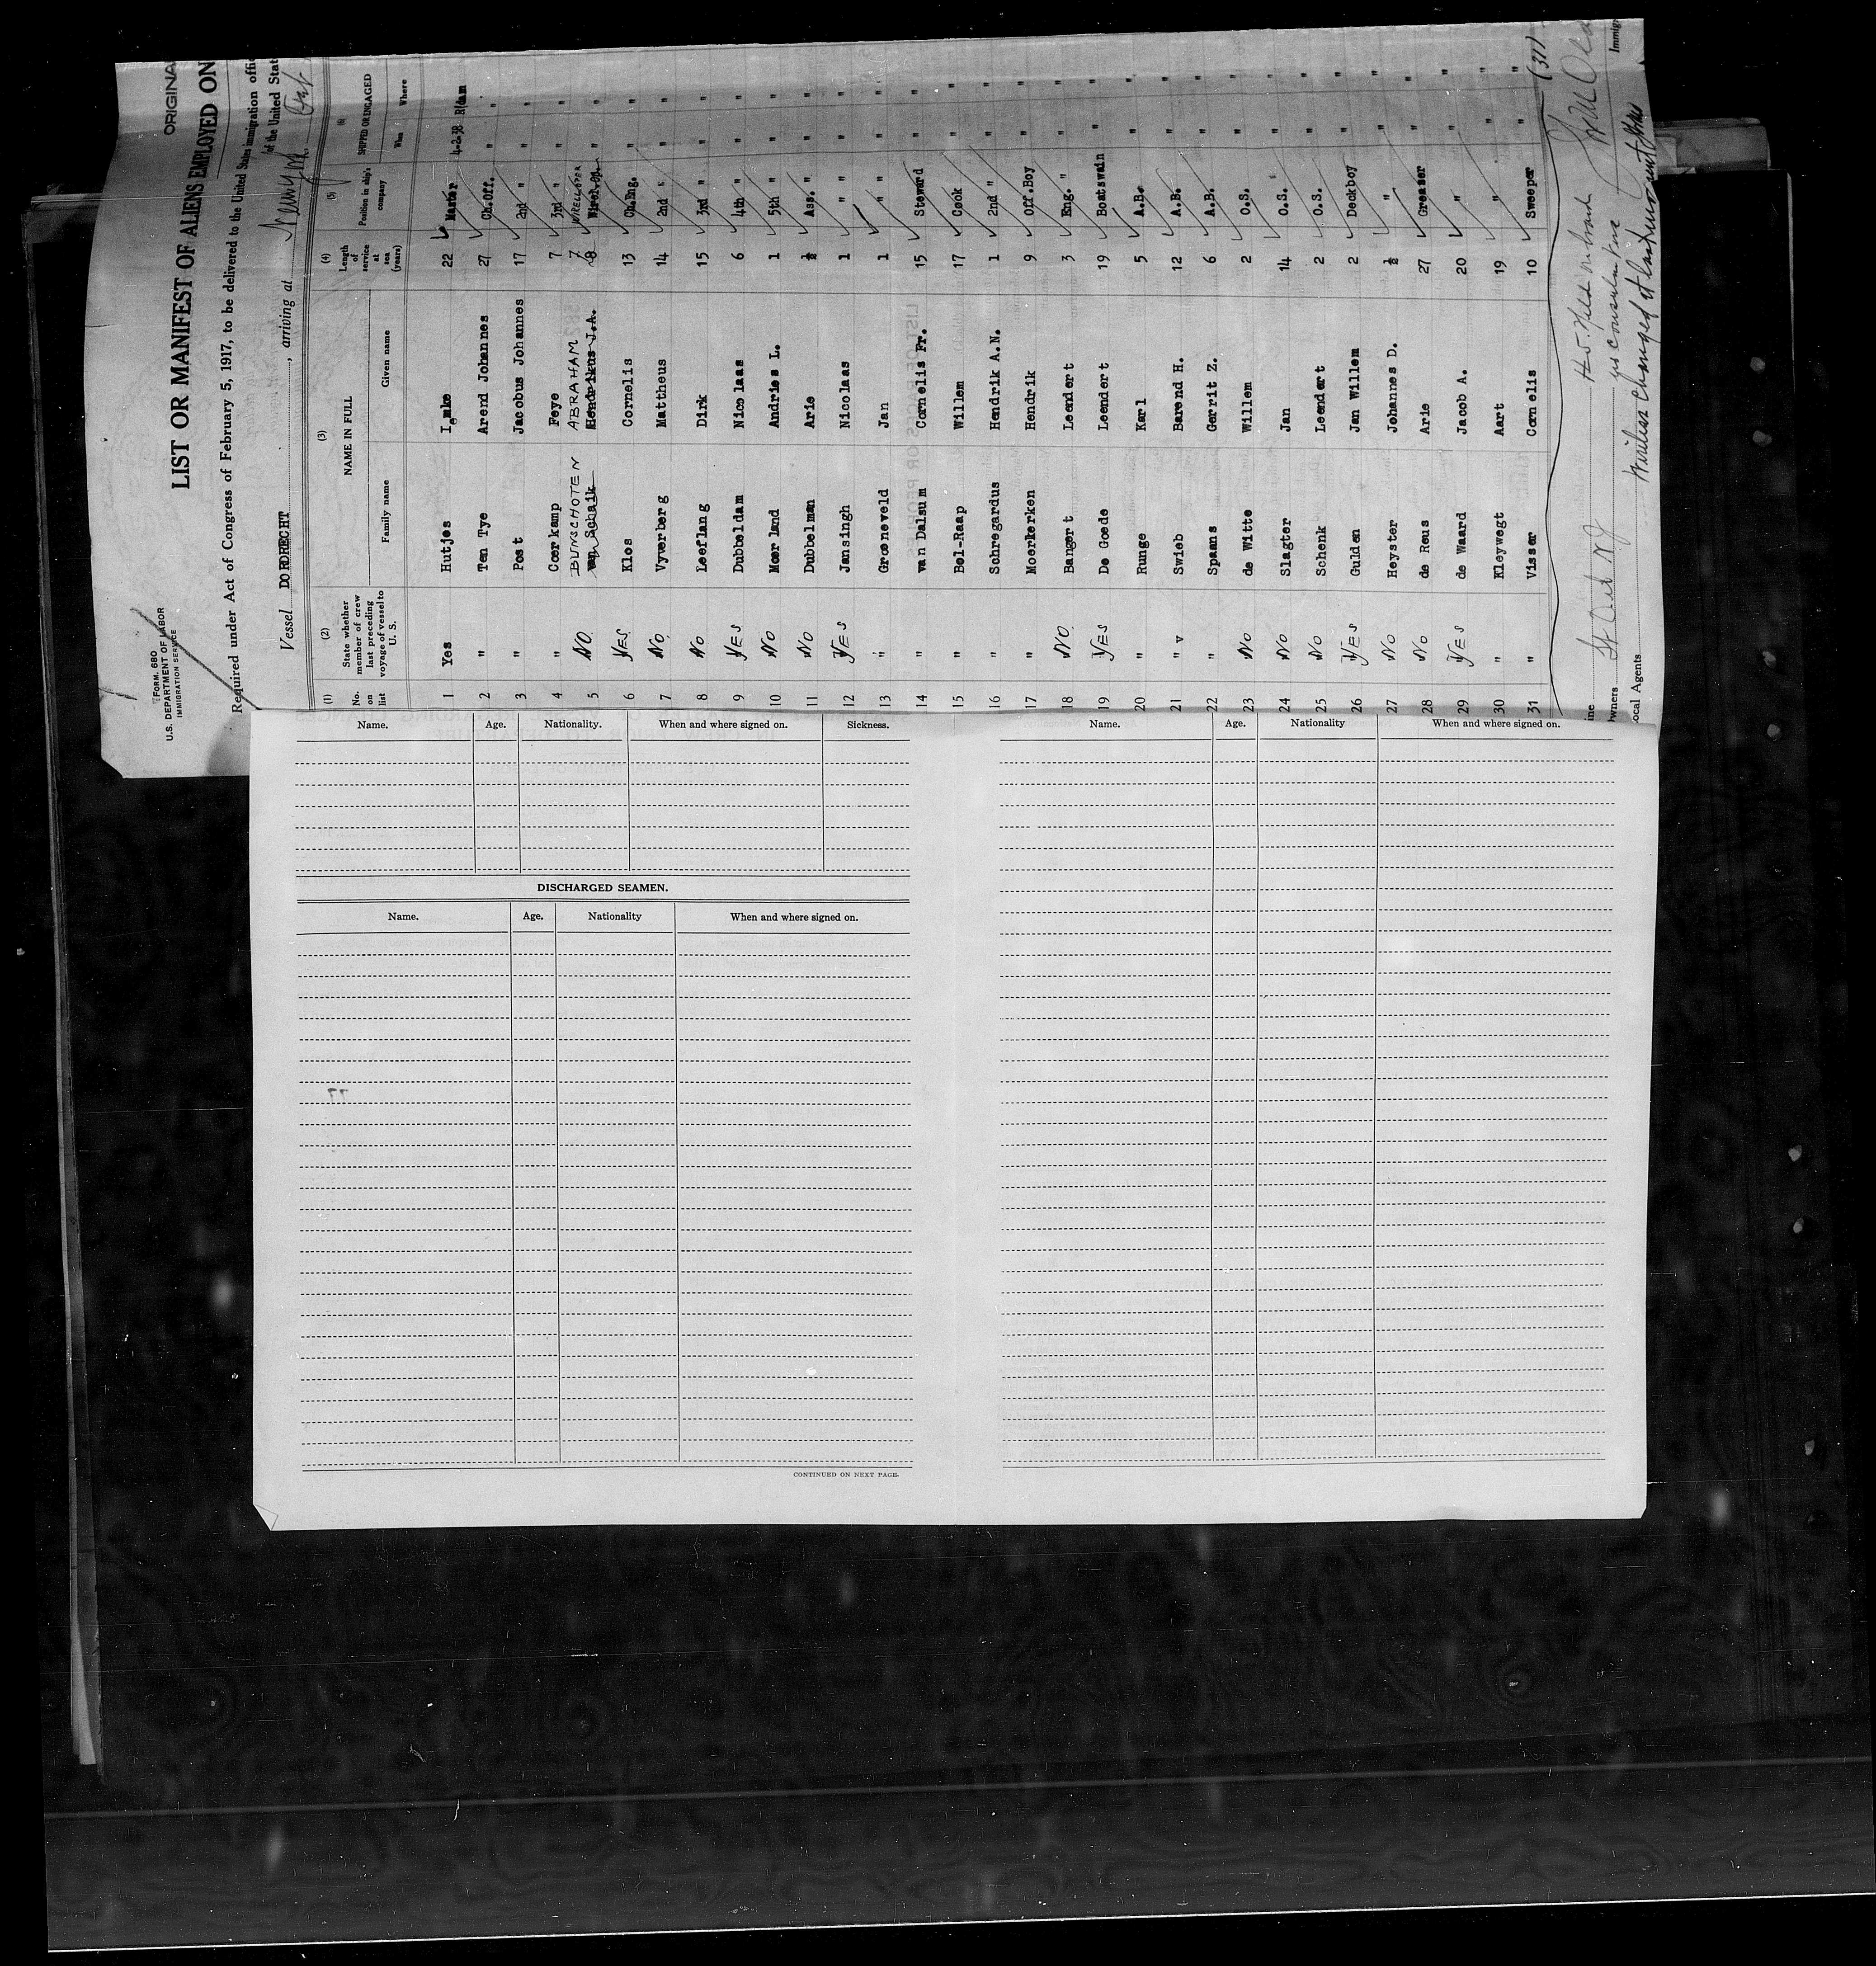 ORIGINA
Form 680
U.S. DEPARTMENT OF LABOR
IMMIGRATION SERVICE
LIST OR MANIFEST OF ALIENS EMPLOYED ON
Required under Act of Congress of February 5, 1917, to be delivered to the United States immigration offic
of the United Stat
Vessel DORDRECHT, arriving at
(1) (2) (3) (4) (5) (6)
No. on list State whether member of crew last preceding voyage of vessel to U. S. NAME IN FULL Length of service at sea (years) Position in ship's company SHIPPED OR ENGAGED
Family name Given name When Where
1 Yes Hutjes Lemke 22 Master 4-2-38 R/dam
2 " Ten Tye Arend Johannes 27 Ch.Off. " "
3 " Post Jacobus Johannes 17 2nd " " "
4 " Coerkamp Feye 7 3rd " " "
BUNSCHOTEN ABRAHAM 7
5 NO van Schaik Hendrikus J.A. 8 Wirel.Op. " "
6 YES Klos Cornelis 13 Ch.Eng. " "
7 NO Vyverberg Mattheus 14 2nd " " "
8 NO Leeflang Dirk 15 3rd " " "
9 YES Dubbeldam Nicolaas 6 4th " " "
10 NO Moerland Andries L. 1 5th " " "
11 NO Dubbelman Arie ½ Ass. " " "
12 YES Jansingh Nicolaas 1 " " " "
13 " Groeneveld Jan 1 " " " "
14 " van Dalsum Cornelis Fr. 15 Steward " "
15 " Bol-Raap Willem 17 Cook " "
16 " Schregardus Hendrik A.N. 1 2nd " " "
17 " Moerkerken Hendrik 9 Off.Boy " "
18 NO Bangert Leendert 3 Eng. " " "
19 YES De Goede Leendert 19 Boatswain " "
20 " Runge Karl 5 A.B. " "
21 " v Swieb Barend H. 12 A.B. " "
22 " Spaans Gerrit Z. 6 A.B. " "
23 NO de Witte Willem 2 O.S. " "
24 NO Slagter Jan 14 O.S. " "
25 NO Schenk Leendert 2 O.S. " "
26 YES Gulden Jan Willem 2 Deckboy " "
27 NO Heyster Johannes D. ½ " " "
28 NO de Reus Arie 27 Greaser " "
29 YES de Waard Jacob A. 20 " " "
30 " Kleywegt Aart 19 " " "
31 " Visser Cornelis 10 Sweeper " "
(31)
ine
wners
ocal Agents
Immigr
Held on board
Wireless changed at last
Name. Age. Nationality. When and where signed on. Sickness.
DISCHARGED SEAMEN.
Name. Age. Nationality When and where signed on.
CONTINUED ON NEXT PAGE.
Name. Age. Nationality When and where signed on.